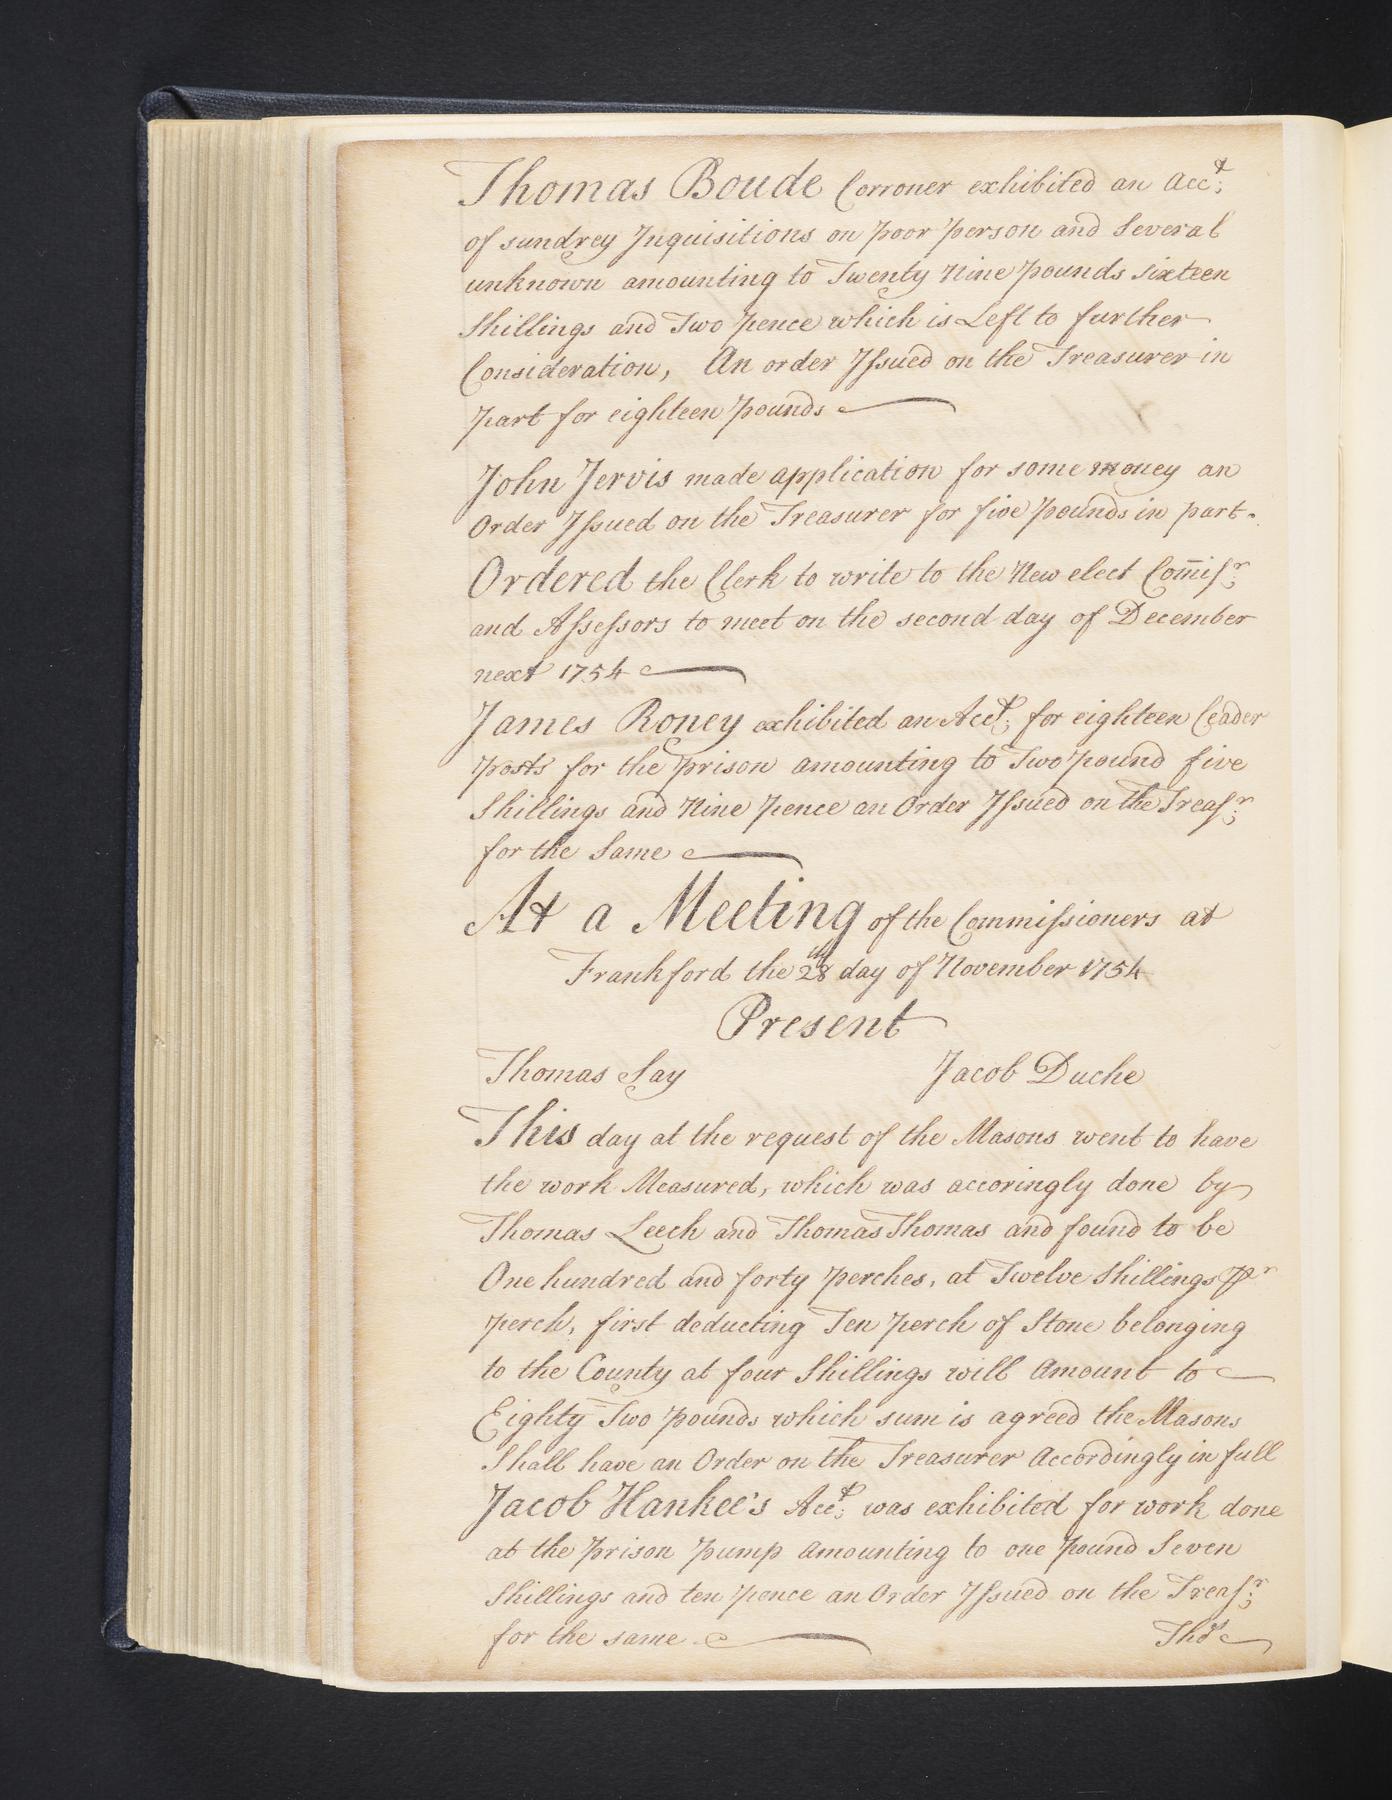 Thomas Boude Corroner exhibited an Acct:
of sundrey Inquisitions on poor person and Several
unknown amounting to Twenty Nine pounds sixteen
Shillings and Two pence which is Left to further
Consideration, An order Issued on the Treasurer in
part for eighteen pounds
John Jervis made application for some money an
Order Issued on the Treasurer for five pounds in part.
Ordered the Clerk to write to the New elect Com̄isr:
and Assessors to meet on the second day of December
next 1754
James Roney exhibited an Acct: for eighteen Ceader
posts for the prison amounting to Two pound five
Shillings and Nine pence an Order Issued on the Treasr:
for the Same
At a Meeting of the Commissioners at
Frankford the 28th day of November 1754
Present
Thomas Say Jacob Duche
This day at the request of the Masons went to have
the work Measured, which was accoringly done by
Thomas Leech and Thomas Thomas and found to be
One hundred and forty perches, at Twelve Shillings pr
perch, first deducting Ten perch of Stone belonging
to the County at four Shillings will Amount to
Eighty Two pounds which sum is agreed the Masons
Shall have an Order on the Treasurer Accordingly in full
Jacob Hankee's Acct: was exhibited for work done
at the prison pump amounting to one pound Seven
Shillings and ten pence an Order Issued on the Treasr:
for the same Thos